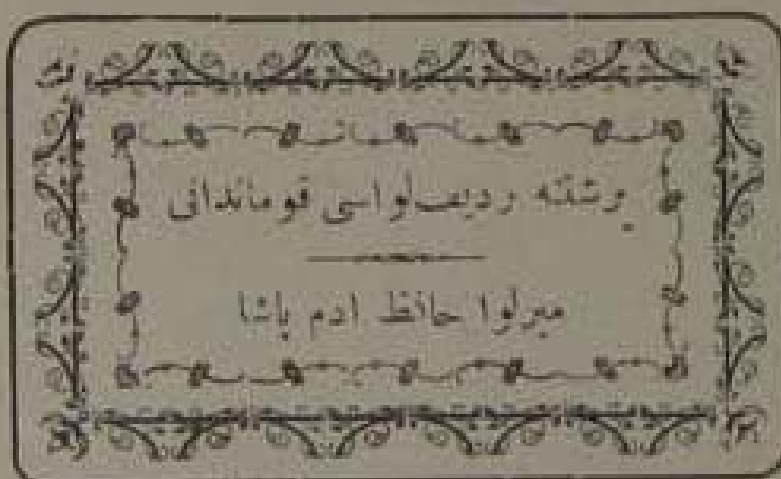 پرشتنه ردیف لواسی قوماندانی
میرلوا حافظ ادم پاشا